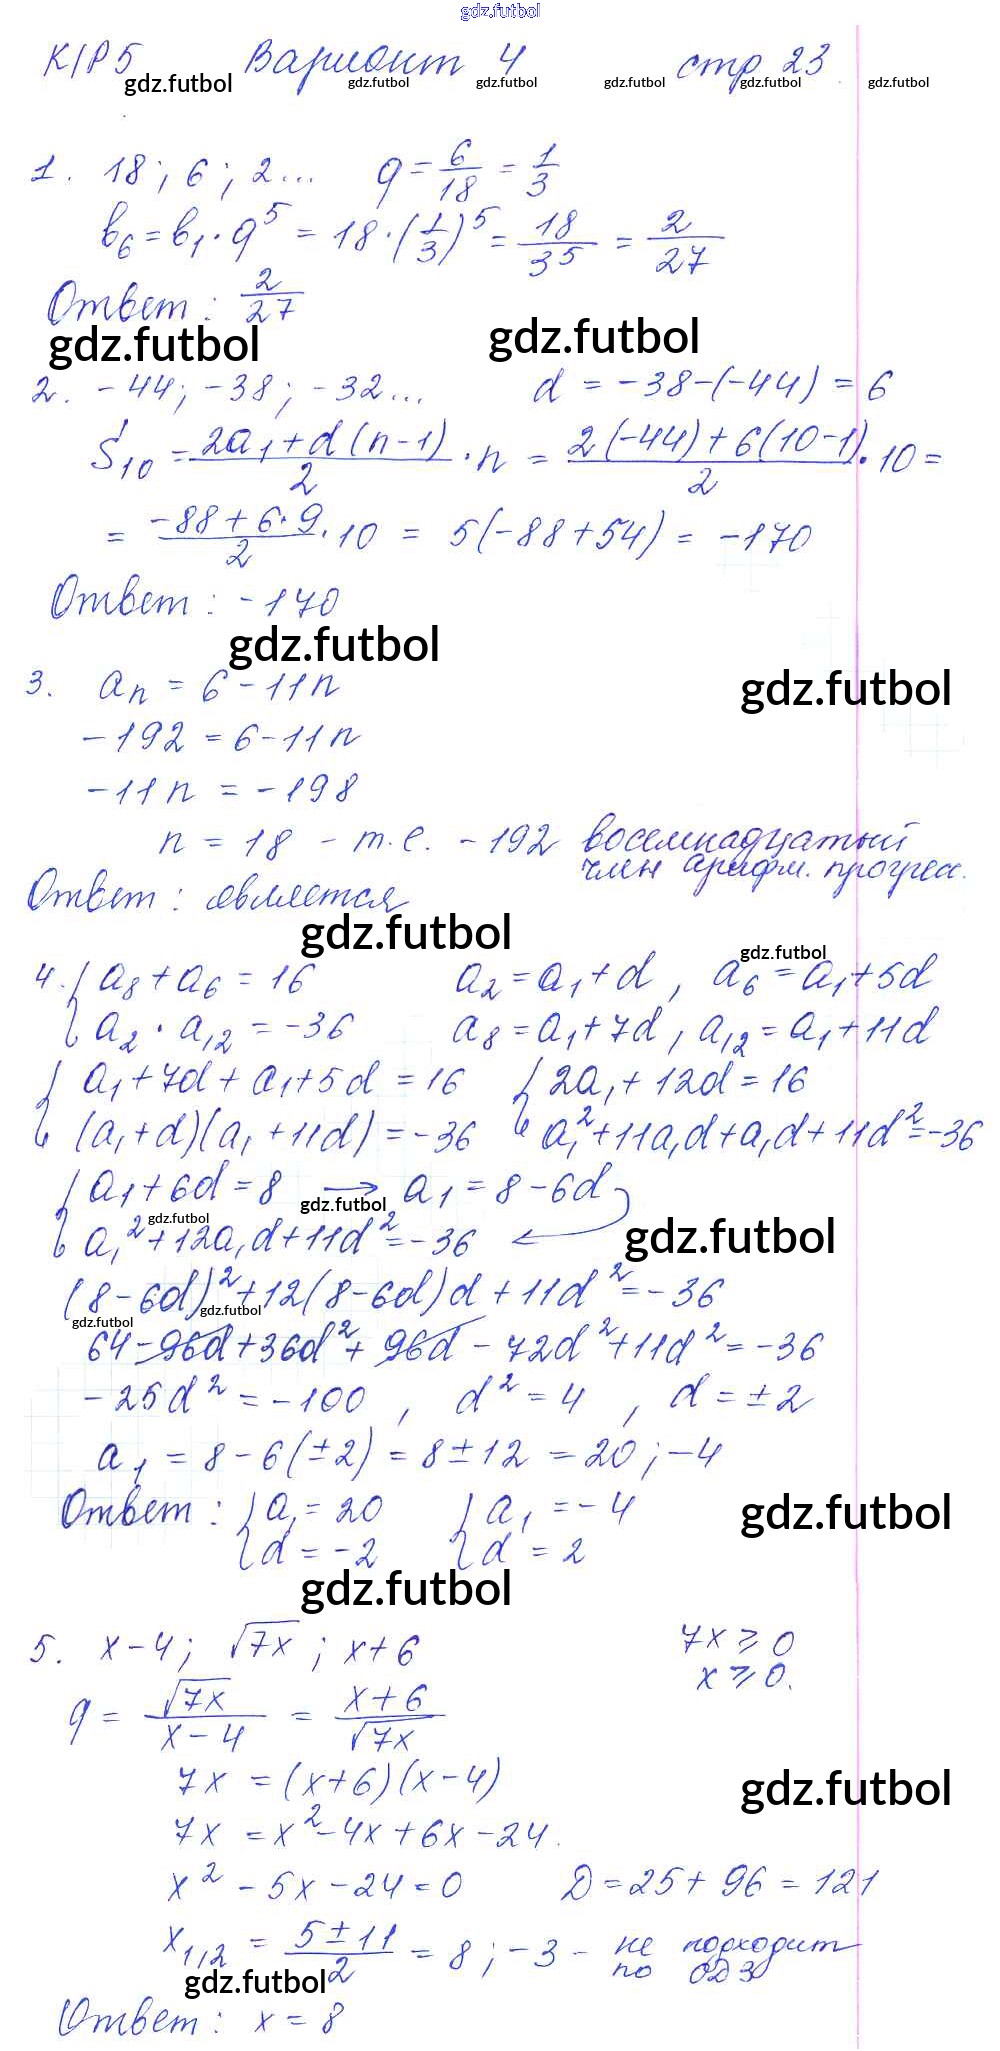 gdz.futbol
К/Р 5 Вариант 4 стр 23
gdz.futbol gdz.futbol gdz.futbol gdz.futbol gdz.futbol gdz.futbol
1. 18; 6; 2... q = 6/18 = 1/3
b₆ = b₁ · q⁵ = 18 · (1/3)⁵ = 18/3⁵ = 2/27
Ответ: 2/27
gdz.futbol gdz.futbol
2. -44; -38; -32... d = -38-(-44) = 6
S₁₀ = (2a₁+d(n-1))/2 · n = (2(-44)+6(10-1))/2 · 10 =
= (-88+6·9)/2 · 10 = 5(-88+54) = -170
Ответ: -170
gdz.futbol
3. aₙ = 6-11n
gdz.futbol
-192 = 6-11n
-11n = -198
n = 18 - т.е. -192 восемнадцатый
член арифм. прогресс.
Ответ: является
gdz.futbol
4. { a₈+a₆ = 16 a₂ = a₁+d, a₆ = a₁+5d
gdz.futbol
a₂ · a₁₂ = -36 a₈ = a₁+7d, a₁₂ = a₁+11d
{ a₁+7d+a₁+5d = 16 { 2a₁+12d = 16
(a₁+d)(a₁+11d) = -36 a₁²+11a₁d+a₁d+11d² = -36
{ a₁+6d = 8 → a₁ = 8-6d
gdz.futbol gdz.futbol
a₁²+12a₁d+11d² = -36 ←
gdz.futbol
(8-6d)²+12(8-6d)d+11d² = -36
gdz.futbol gdz.futbol
64-96d+36d²+96d-72d²+11d² = -36
-25d² = -100, d² = 4, d = ±2
a₁ = 8-6(±2) = 8±12 = 20; -4
Ответ: { a₁ = 20 { a₁ = -4
gdz.futbol
d = -2 d = 2
gdz.futbol
5. x-4; √7x; x+6 7x ⩾ 0
x ⩾ 0.
q = √7x/(x-4) = (x+6)/√7x
7x = (x+6)(x-4)
gdz.futbol
7x = x²-4x+6x-24
x²-5x-24=0 D=25+96=121
x₁,₂ = (5±11)/2 = 8; -3 - не подходит
по ОДЗ
gdz.futbol
Ответ: x = 8